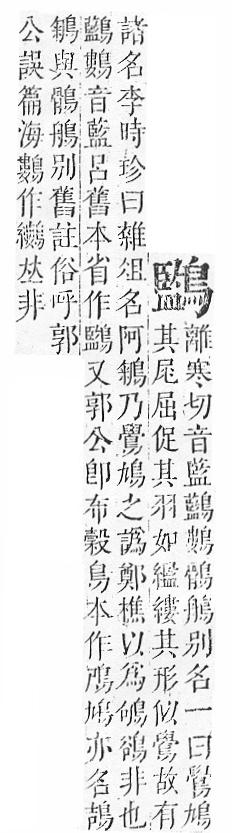 離寒切音藍鷜鶻鵃別名一曰鷽鳩
其尾屈促其羽如繿縷其形似鷽故有
諸名李時珍曰雜俎名阿鵴乃鷽鳩之譌鄭樵以為鴝鵒非也
鷜音藍呂舊本省作又郭公即布穀鳥本作鳲鳩亦名鴶
鵴與鶻鵃別舊註俗呼郭
公誤篇海鷜作𠀤非